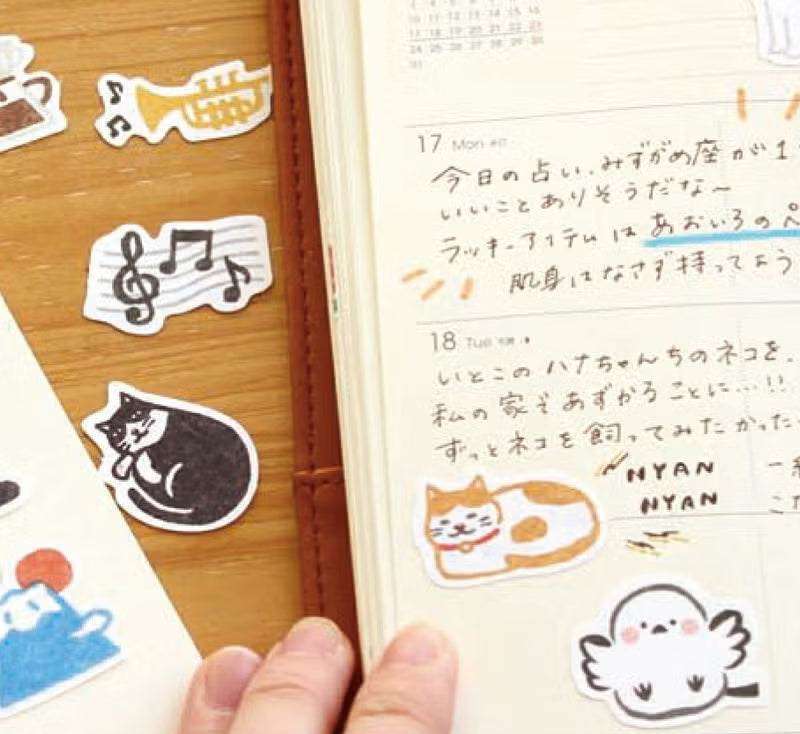 17 Mon
今日の占い、みずがめ座が1
いいことありそうだな〜
ラッキーアイテムは あおいろのペ
肌身はなさず持ってよう
18 Tue
いとこのハナちゃんちのネコを、
私の家であずかることに…!!
ずっとネコを飼ってみたかった
NYAN
NYAN